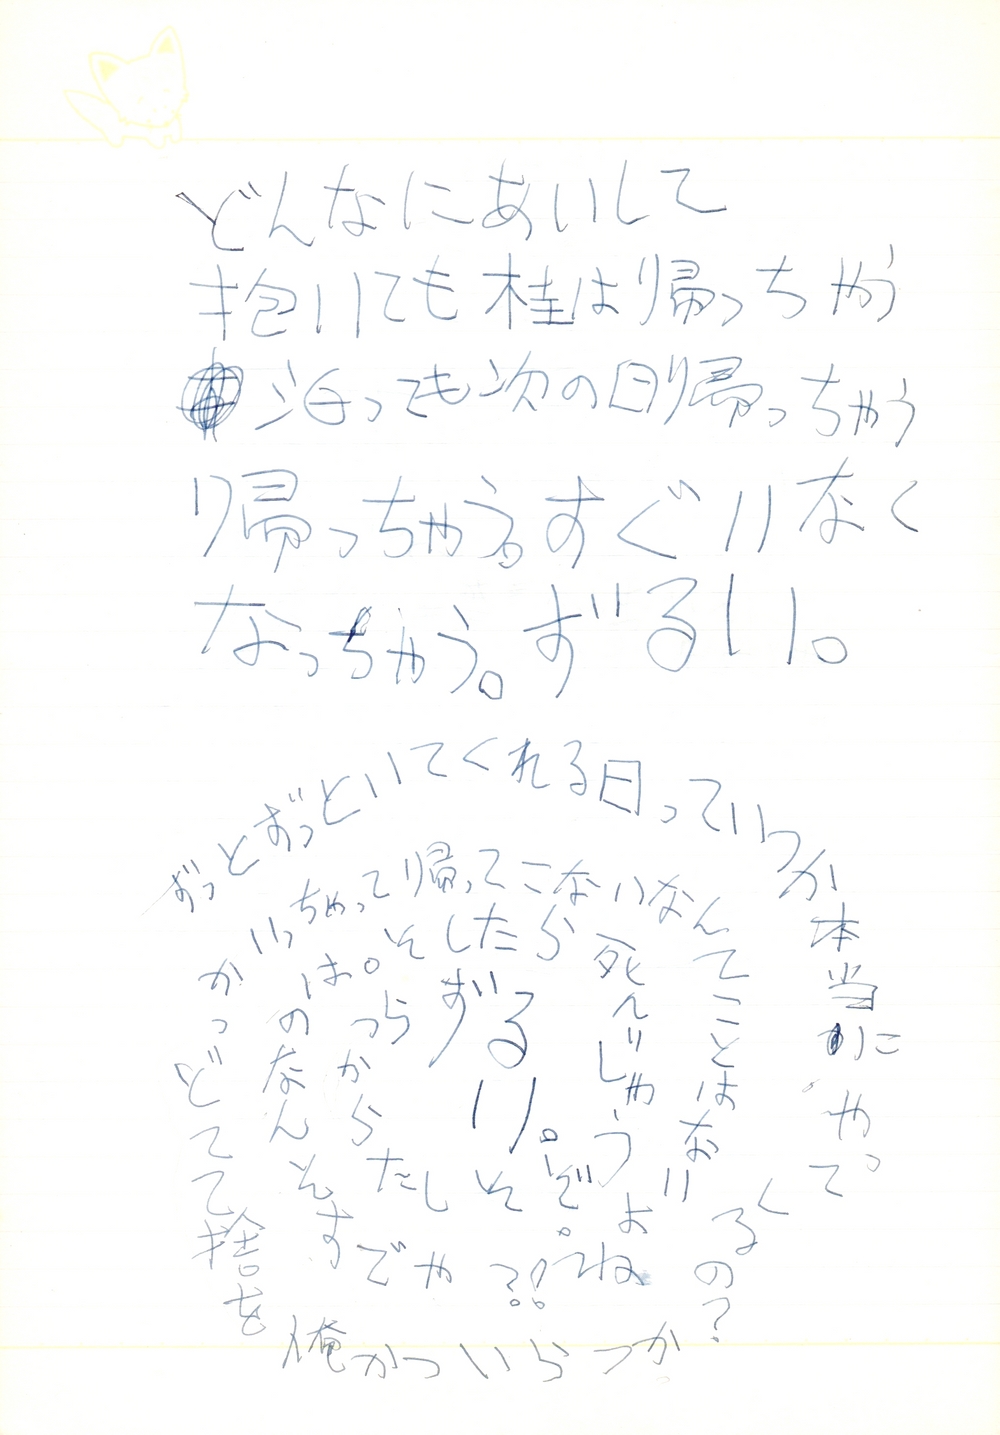 どんなにあいして
抱いても桂は帰っちゃう
泊っても次の日帰っちゃう
帰っちゃう。すぐいなく
なっちゃう。ずるい。
ずっとずっといてくれる日っていつか本当にやってくるの?
かつらいつか俺を捨ててどっかいっちゃって帰ってこないなんてことはないよね〜??
やですそんなのは。そしたら死んじゃうぞ。そしたらかつらずるい。